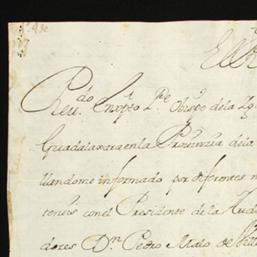 Reu.do en xpto P.e Obispo de la Yg
Guadalaxara en la Prouinzia de la
llandome informado por diferentes
tensis con el Presidente de la Aud
dores Dn Pedro Malo de Vill